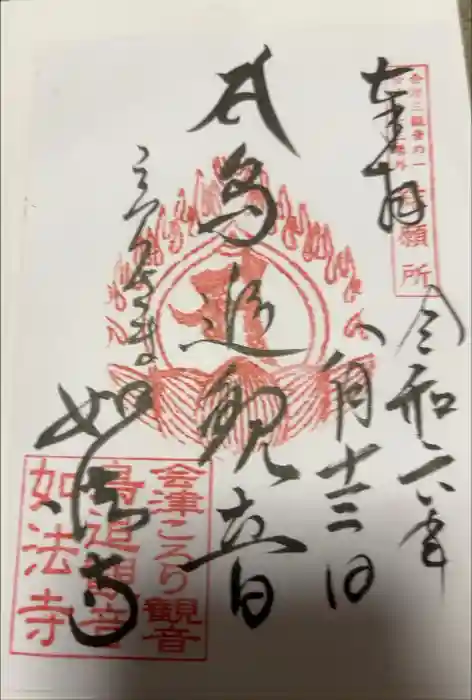 会津三観音の一
祈願所
奉拝
令和六年
八月十三日
鳥追観音
如法寺
会津ころり観音
鳥追観音
如法寺